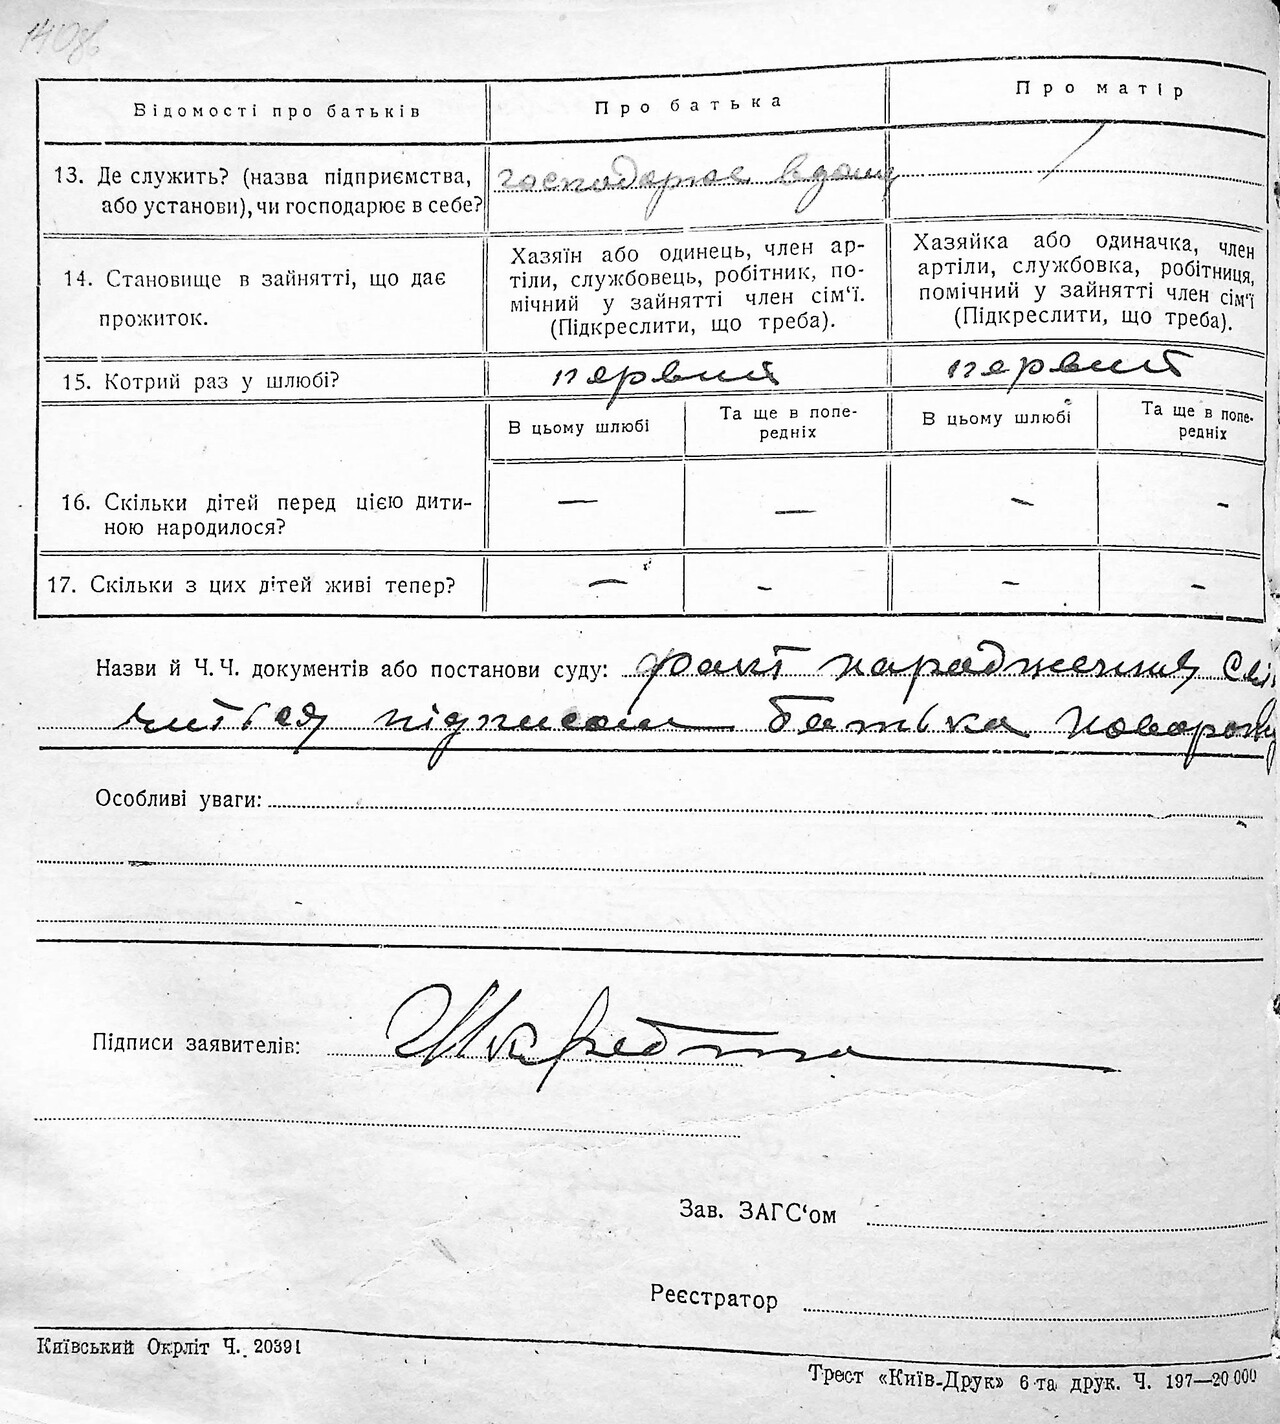 140зв
Відомості про батьків
Про батька
Про матір
13. Де служить? (назва підприємства,
або установи), чи господарює в себе?
господарює вдома
14. Становище в зайнятті, що дає
прожиток.
Хазяїн або одинець, член ар-
тіли, службовець, робітник, по-
мічний у зайнятті член сім‘ї.
(Підкреслити, що треба).
Хазяйка або одиначка, член
артіли, службовка, робітниця,
помічний у зайнятті член сім‘ї
(Підкреслити, що треба).
15. Котрий раз у шлюбі?
первий
первий
В цьому шлюбі
Та ще в попе-
редніх
В цьому шлюбі
Та ще в попе-
редніх
16. Скільки дітей перед цією дити-
ною народилося?
— — — -
17. Скільки з цих дітей живі тепер?
— - - -
Назви й Ч. Ч. документів або постанови суду: факт народження сві
читься підписом батька
Особливі уваги:
Підписи заявителів:
Зав. ЗАГС‘ом
Реєстратор
Київський Окрліт Ч. 20391
Трест «Київ-Друк» 6-та друк. Ч. 197—20 000